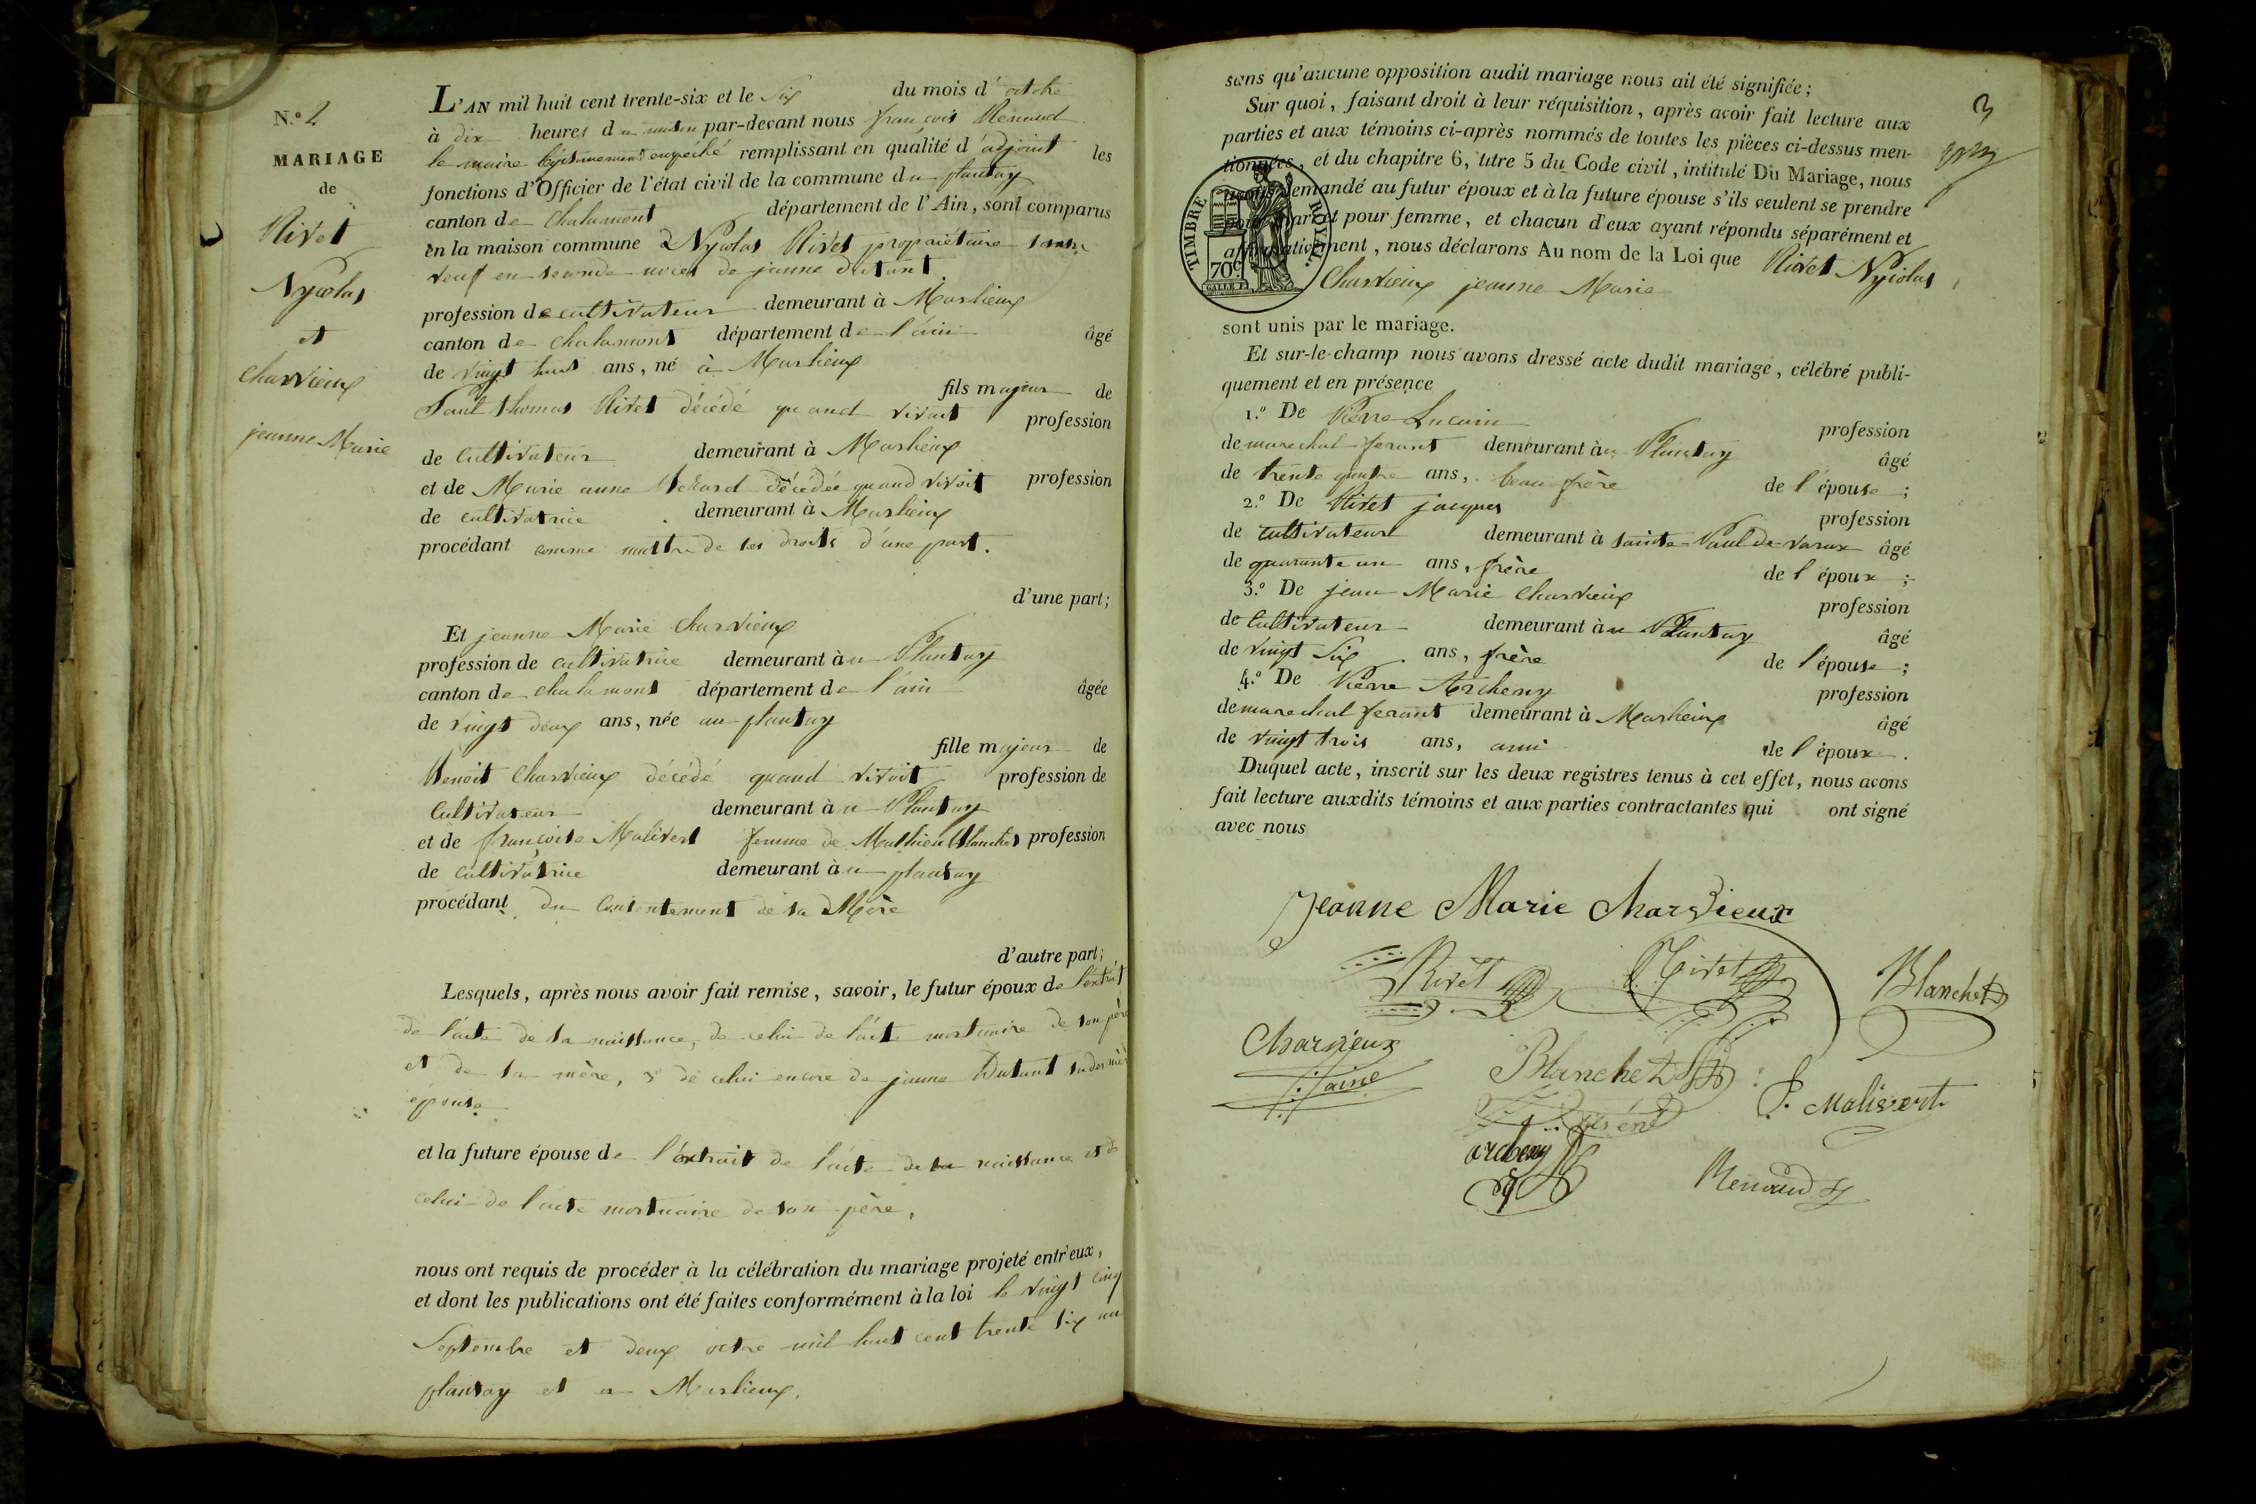 N.º 2
MARIAGE
de
Rivet
Nycolas
et
Charvieux
jeanne Marie
L'AN mil huit cent trente-six et le Six du mois d'octobre
à dix heures du matin par-devant nous françois Renaud
le maire légitimement empéché remplissant en qualité d'adjoint les
fonctions d'Officier de l'état civil de la commune du plantay
canton de Chalamont département de l'Ain, sont comparus
en la maison commune Nycolas Rivet propriétaire
veuf en seconde noces de jeanne Dutant
profession de cultivateur demeurant à Marlieux
canton de Chalamont département de l'ain âgé
de vingt huit ans, né à Marlieux
fils majeur de
Paul thomas Rivet décédé quand vivait profession
de Cultivateur demeurant à Marlieux
et de Marie anne décédée quand vivoit profession
de cultivatrice demeurant à Marlieux
procédant comme maitre de ses droits d'une part.
d'une part;
Et jeanne Marie Charvieux
profession de cultivatrice demeurant àu Plantay
canton de chalamont département de l'ain âgée
de vingt deux ans, née au plantay
fille majeur de
Benoit Charvieux décédé quand vivoit profession de
Cultivateur demeurant àu Plantay
et de françoise Malivert femme de Mathieu Blanchet profession
de Cultivatrice demeurant àu plantay
procédant du Consentement de sa Mère
d'autre part;
Lesquels, après nous avoir fait remise, savoir, le futur époux de l'extrait
de l'acte de sa naissance, de celui de l'acte mortuaire de son père
et de sa mère, & de celui encore de jeanne Dutant sa dernière
épouse
et la future épouse de l'extrait de l'acte de sa naissance et de
celui de l'acte mortuaire de son père,
nous ont requis de procéder à la célébration du mariage projeté entr'eux,
et dont les publications ont été faites conformément à la loi le vingt cinq
Septembre et deux octre mil huit cent trente six au
plantay et a Marlieux.
3
sans qu'aucune opposition audit mariage nous ait été signifiée;
Sur quoi, faisant droit à leur réquisition, après avoir fait lecture aux
parties et aux témoins ci-après nommés de toutes les pièces ci-dessus men-
tionnées, et du chapitre 6, titre 5 du Code civil, intitulé Du Mariage, nous
avons demandé au futur époux et à la future épouse s'ils veulent se prendre
pour mari et pour femme, et chacun d'eux ayant répondu séparément et
affirmativement, nous déclarons Au nom de la Loi que Rivet Nycolas
Charvieux jeanne Marie
TIMBRE ROYAL
70c
sont unis par le mariage.
Et sur-le-champ nous avons dressé acte dudit mariage, célébré publi-
quement et en présence
1.º De Pierre profession
de marechal ferant demeurant àu Plantay âgé
de trente quatre ans, beau frère de l'épouse;
2.º De Rivet jacques profession
de cultivateur demeurant à sainte Paul de varax âgé
de quarante un ans, frère de l'époux;
3.º De jean Marie Charvieux profession
de Cultivateur demeurant àu Plantay âgé
de vingt Six ans, frère de l'épouse;
4.º De Pierre Archeny profession
de marechal ferant demeurant à Marlieux âgé
de vingt trois ans, ami de l'époux.
Duquel acte, inscrit sur les deux registres tenus à cet effet, nous avons
fait lecture auxdits témoins et aux parties contractantes qui ont signé
avec nous
Jeanne Marie Charvieux
Rivet Rivet Blanchet
Charvieux
ainé
Blanchet
P. Malivert
archeny
Renaud